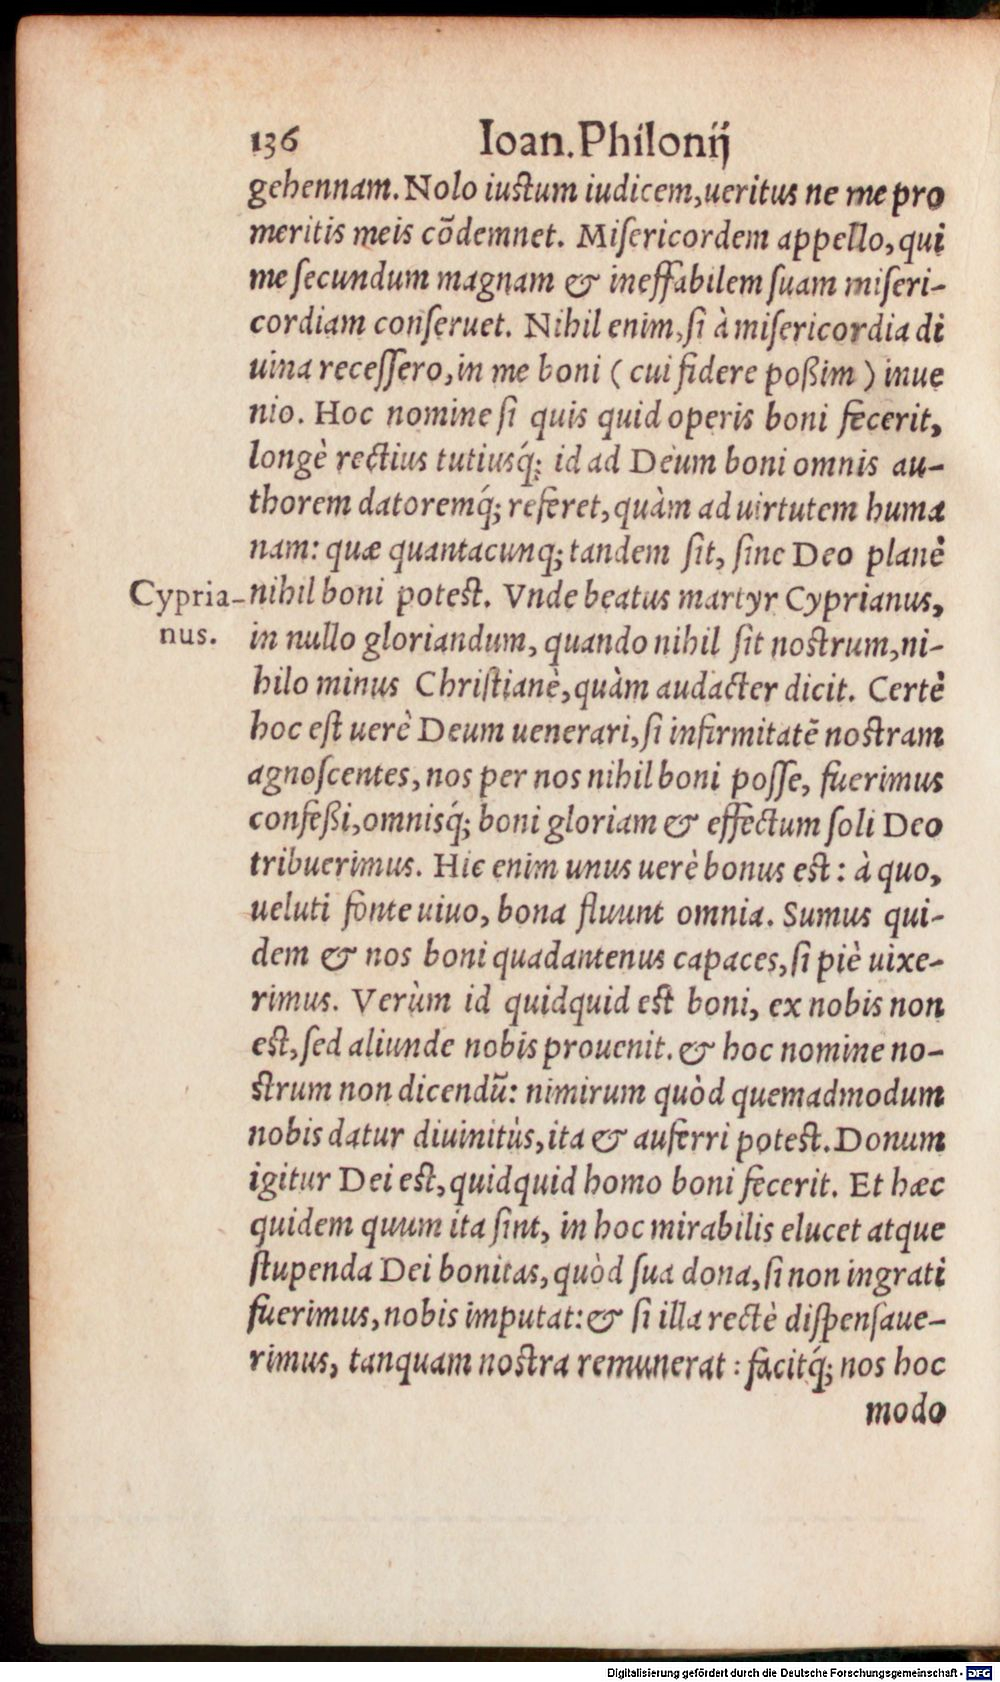 136 Ioan. Philonij
gehennam. Nolo iustum iudicem, ueritus ne me pro
meritis meis cōdemnet. Misericordem appello, qui
me secundum magnam & ineffabilem suam miseri-
cordiam conseruet. Nihil enim, si à misericordia di
uina recessero, in me boni ( cui fidere poßim ) inue
nio. Hoc nomine si quis quid operis boni fecerit,
longè rectius tutiusq́; id ad Deum boni omnis au-
thorem datoremq́; referet, quàm ad uirtutem huma
nam: quæ quantacunq; tandem sit, sine Deo planè
Cypria-
nus.
nihil boni potest. Vnde beatus martyr Cyprianus,
in nullo gloriandum, quando nihil sit nostrum, ni-
hilo minus Christianè, quàm audacter dicit. Certè
hoc est uerè Deum uenerari, si infirmitatē nostram
agnoscentes, nos per nos nihil boni posse, fuerimus
confeßi, omnisq́; boni gloriam & effectum soli Deo
tribuerimus. Hic enim unus uerè bonus est: à quo,
ueluti fonte uiuo, bona fluunt omnia. Sumus qui-
dem & nos boni quadantenus capaces, si piè uixe-
rimus. Verùm id quidquid est boni, ex nobis non
est, sed aliunde nobis prouenit. & hoc nomine no-
strum non dicendū: nimirum quòd quemadmodum
nobis datur diuinitùs, ita & auferri potest. Donum
igitur Dei est, quidquid homo boni fecerit. Et hæc
quidem quum ita sint, in hoc mirabilis elucet atque
stupenda Dei bonitas, quòd sua dona, si non ingrati
fuerimus, nobis imputat: & si illa rectè dispensaue-
rimus, tanquam nostra remunerat : facitq́; nos hoc
modo
Digitalisierung gefördert durch die Deutsche Forschungsgemeinschaft - DFG